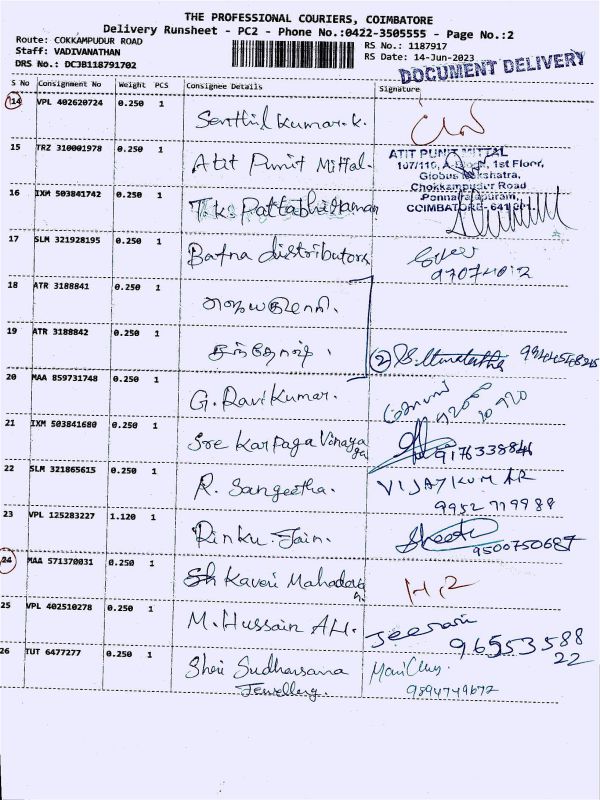 THE PROFESSIONAL COURIERS, COIMBATORE
Delivery Runsheet - PC2 - Phone No.:0422-3505555 - Page No.:2
Route: COKKAMPUDUR ROAD
RS No.: 1187917
Staff: VADIVANATHAN
RS Date: 14-Jun-2023
DRS No.: DCJB118791702
DOCUMENT DELIVERY
S No Consignment No Weight PCS Consignee Details Signature
14 VPL 402620724 0.250 1 Senthil Kumar.k.
15 TRZ 310001978 0.250 1 Atit Punit Mittal.
ATIT PUNIT MITTAL
1st Floor,
Chokkampudur Road
Ponnairajapuram,
COIMBATORE- 641
16 IXM 503841742 0.250 1 T.ks Pattabhiraman
17 SLM 321928195 0.250 1 Bafna distributors
18 ATR 3188841 0.250 1
19 ATR 3188842 0.250 1
2
20 MAA 859731748 0.250 1 G. Ravi Kumar.
21 IXM 503841680 0.250 1 Sre Karpaga Vinayaga
9176338846
22 SLM 321865615 0.250 1 R. Sangeetha. VIJAYKUMAR
9952 779988
23 VPL 125283227 1.120 1 Rinku Jain.
9500750687
24 MAA 571370031 0.250 1 Kaveri
25 VPL 402510278 0.250 1 M. Hussain Ali. Jeeram
9655358822
26 TUT 6477277 0.250 1 Shri Sudharsana
Jewellery. 9894749672